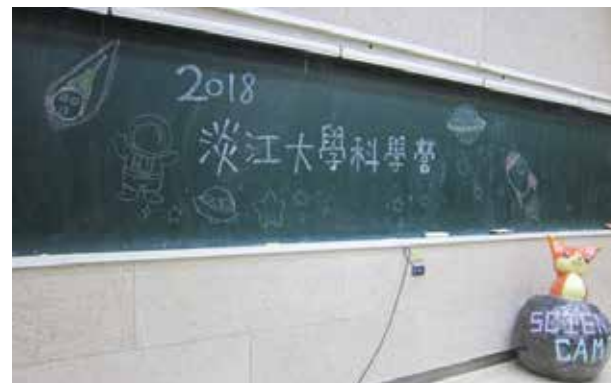 2018
淡江大學科學營
SCIEN
CAM